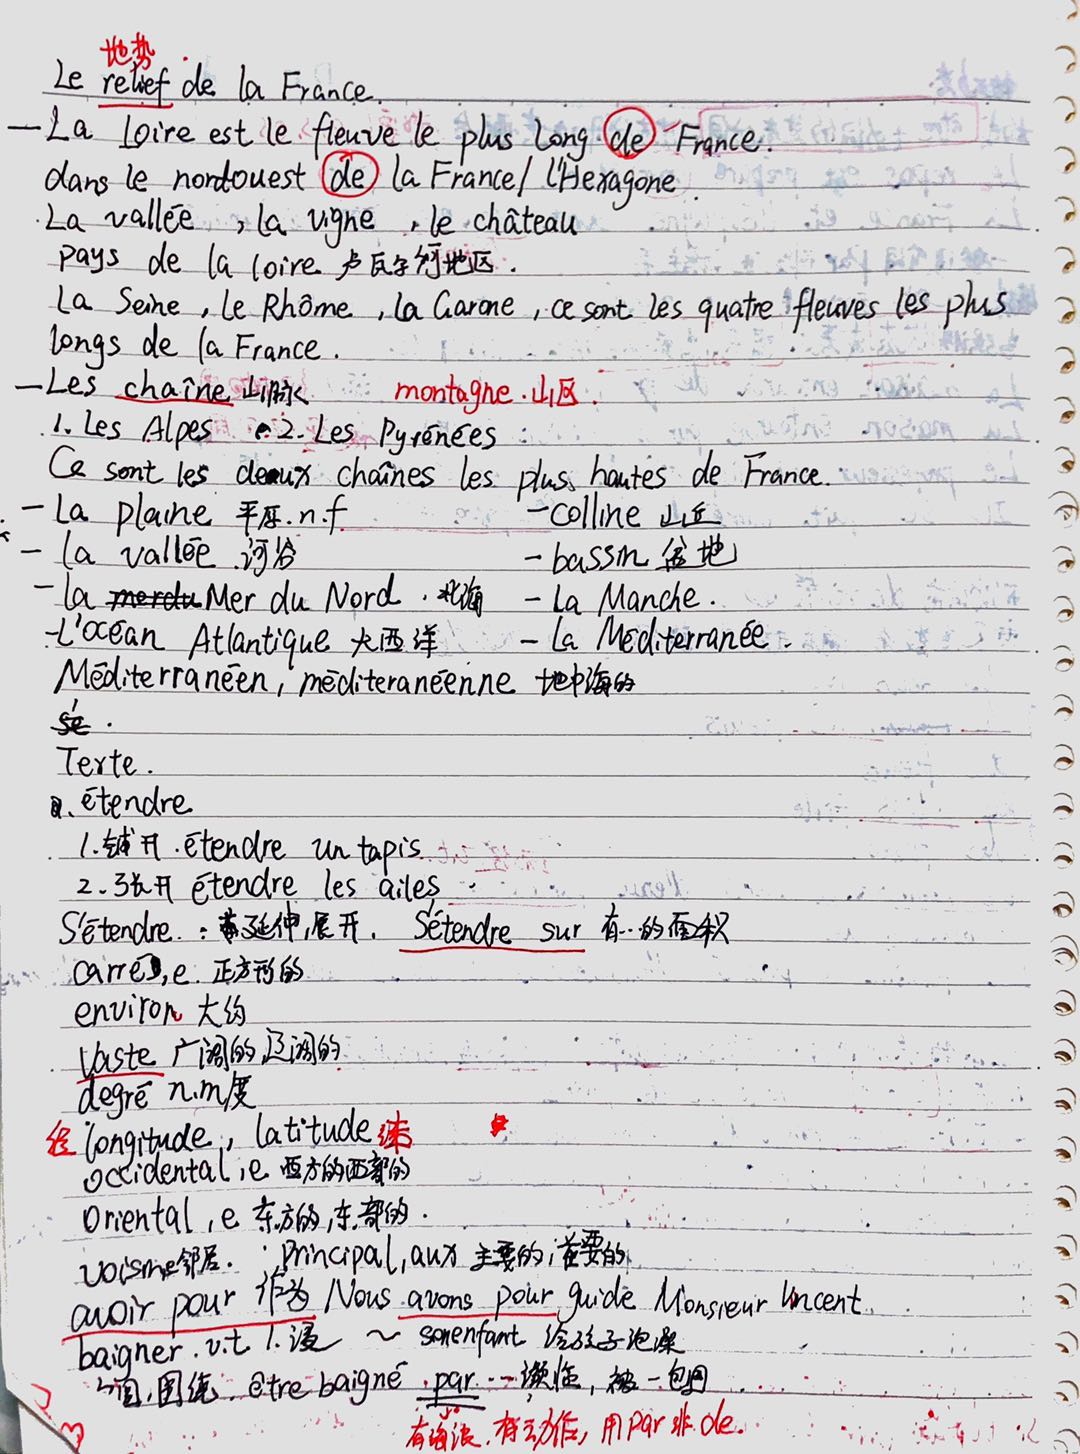 地势
Le relief de la France.
—La Loire est le fleuve le plus long de France.
dans le nordouest de la France/ l'Hexagone
La vallée , la vigne , le château
pays de la loire 卢瓦尔河地区.
La Seine, le Rhôme, la Garone, ce sont les quatre fleuves les plus
longs de la France.
—Les chaîne 山脉 montagne.山区.
1. Les Alpes 2. Les Pyrénées
Ce sont les deux chaînes les plus hautes de France.
— La plaine 平原.n.f —colline 山丘
— la vallée 河谷 — bassin 盆地
— la Mer du Nord. 北海 — La Manche.
—L'océan Atlantique 大西洋 — La Méditerranée.
Méditerranéen, méditeranéenne 地中海的
Texte.
étendre
1.铺开.étendre un tapis
2.张开 étendre les ailes
S'étendre : 延伸,展开. S'étendre sur 有…的面积
carré,e 正方形的
environ 大约
Vaste 广阔的 辽阔的
degré n.m 度
经 longitude, latitude 纬
occidental,e 西方的 西部的
Oriental,e 东方的,东部的.
voisine 邻居. Principal,aux 主要的,重要的
avoir pour 作为 Nous avons pour guide Monsieur Vincent
baigner.v.t 1.浸 ~ son enfant 给孩子泡澡
围绕 être baigné par … 濒临, 被…包围
有海浪,有动作,用par非de.